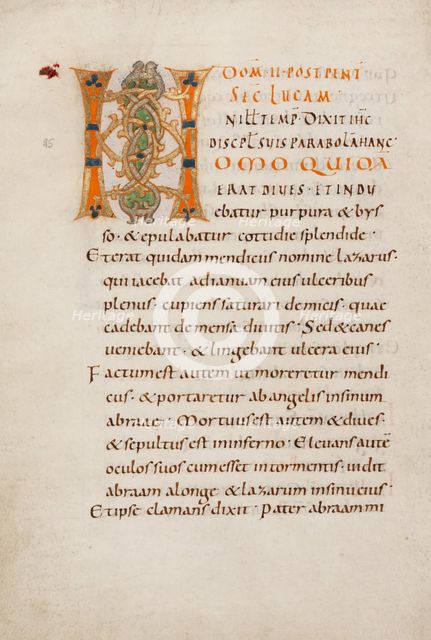 DOM̄·II·POST PENT̄
SEC̄ LUCAM·
N ILL TEMP̄· DIXIT IHC̄
DISCPL̄ SUIS PARABOLAM HANC·
HOMO QUIDA
ERAT DIVES· ET INDU
ebatur purpura & bys
so· & epulabatur cottidie splendide·
Et erat quidam mendicus nomine lazarus·
qui iacebat ad ianuam eius ulceribus
plenus· cupiens saturari de micis· quae
cadebant de mensa divitis· Sed & canes
veniebant· & lingebant ulcera eius·
Factum est autem ut moreretur mendi
cus· & portaretur ab angelis in sinum
abraae· Mortuus est autem & dives·
& sepultus est in inferno· Elevans autē
oculos suos cum esset in tormentis· vidit
abraam a longe & lazarum in sinu eius·
Et ipse clamans dixit· Pater abraam mi
85
Heritage
Heritage
Heritage
Heritage
Heritage
Heritage